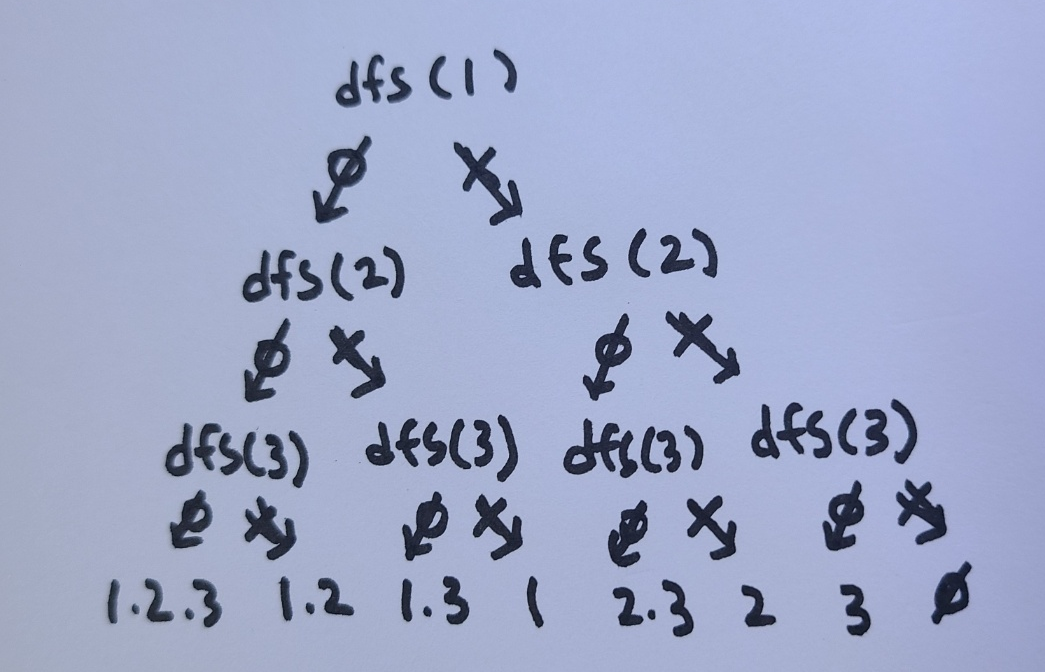 dfs(1)
∅ X
dfs(2) dfs(2)
∅ X ∅ X
dfs(3) dfs(3) dfs(3) dfs(3)
∅ X ∅ X ∅ X ∅ X
1.2.3 1.2 1.3 1 2.3 2 3 ∅